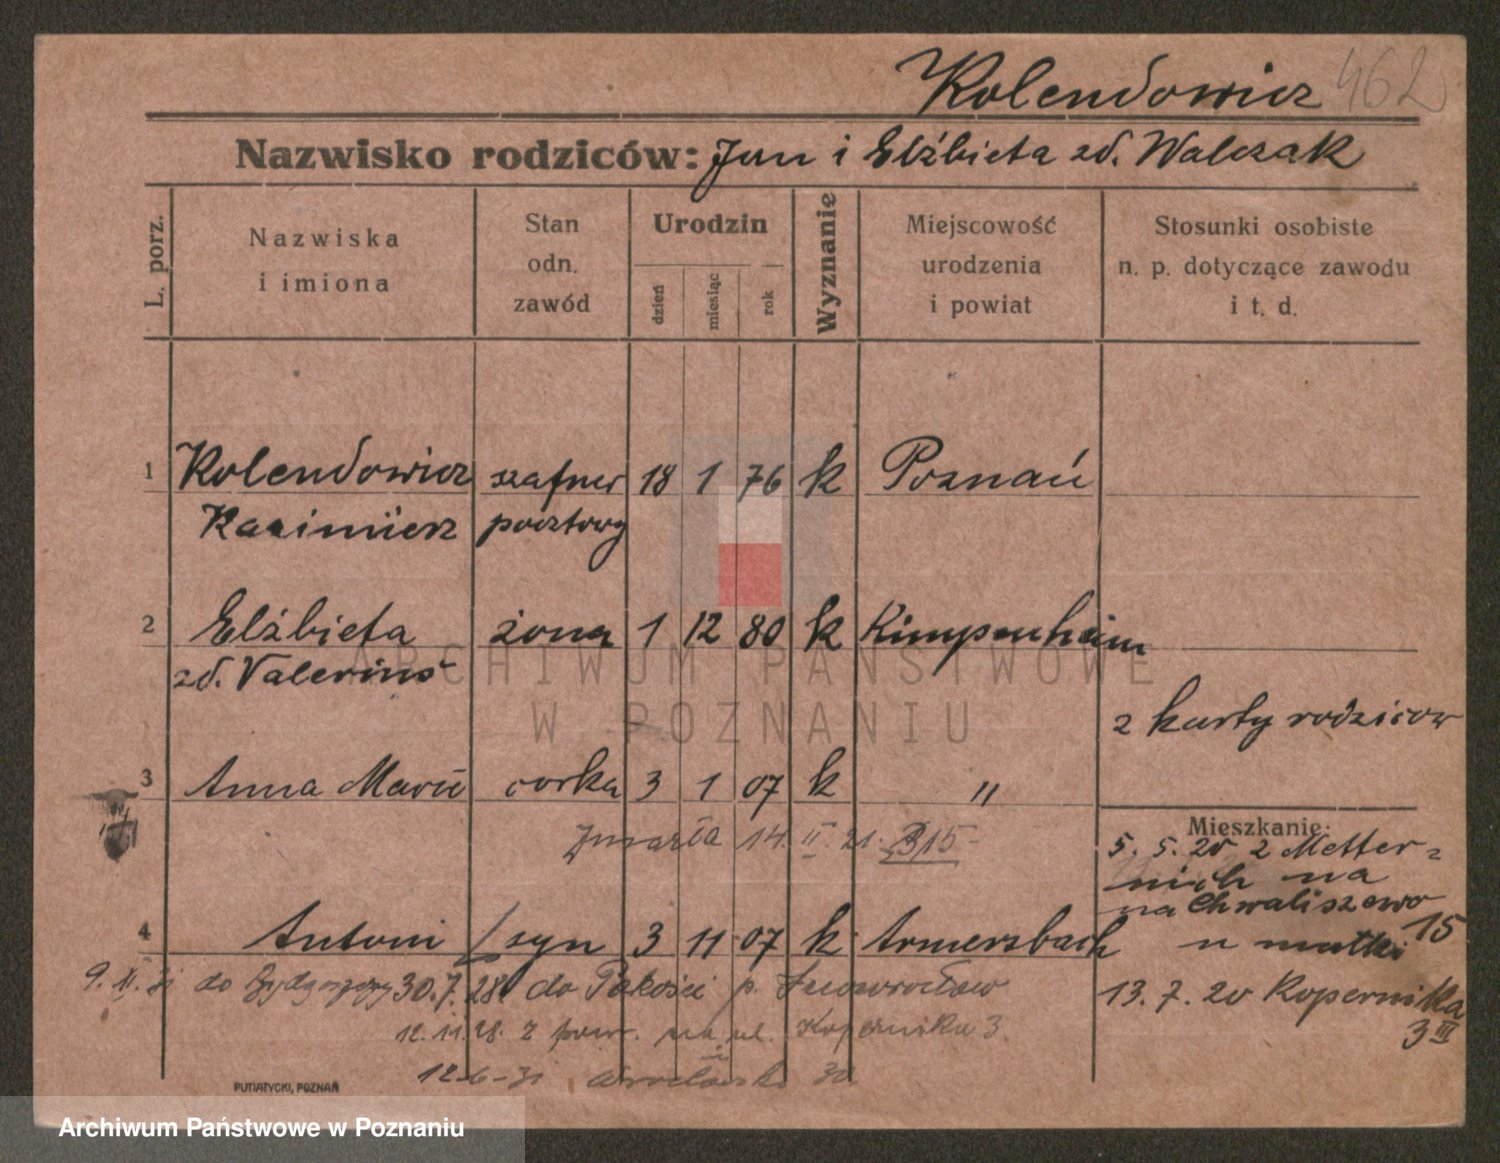 Kolendowicz 462
Nazwisko rodziców: Jan i Elżbieta zd. Walczak
L. porz.
Nazwiska i imiona
Stan odn. zawód
Urodzin
dzień
miesiąc
rok
Wyznanie
Miejscowość urodzenia i powiat
Stosunki osobiste n. p. dotyczące zawodu i t. d.
1 Kolendowicz szafner 18 1 76 k Poznań
Kazimierz pocztowy
2 Elżbieta żona 1 12 80 k Kimpenheim
zd. Valerius
z karty rodziców
3 Anna Marii corka 3 1 07 k "
Zmarła 14. II. 21. 315
Mieszkanie:
5. 5. 20 z Metter-
nich na
na Chwaliszewo 15
u matki
4 Antoni syn 3 11 07 k Armersbach
9. XI. 31 do Bydgoszczy 30.7.28 do Pakości p. Inowrocław
13. 7. 20 Kopernika
3 III
12.11.28. z pow. na ul. Kopernika 3.
12-6-31 Wrocławska 30
PUTIATYCKI, POZNAŃ
ARCHIWUM PAŃSTWOWE
W POZNANIU
Archiwum Państwowe w Poznaniu